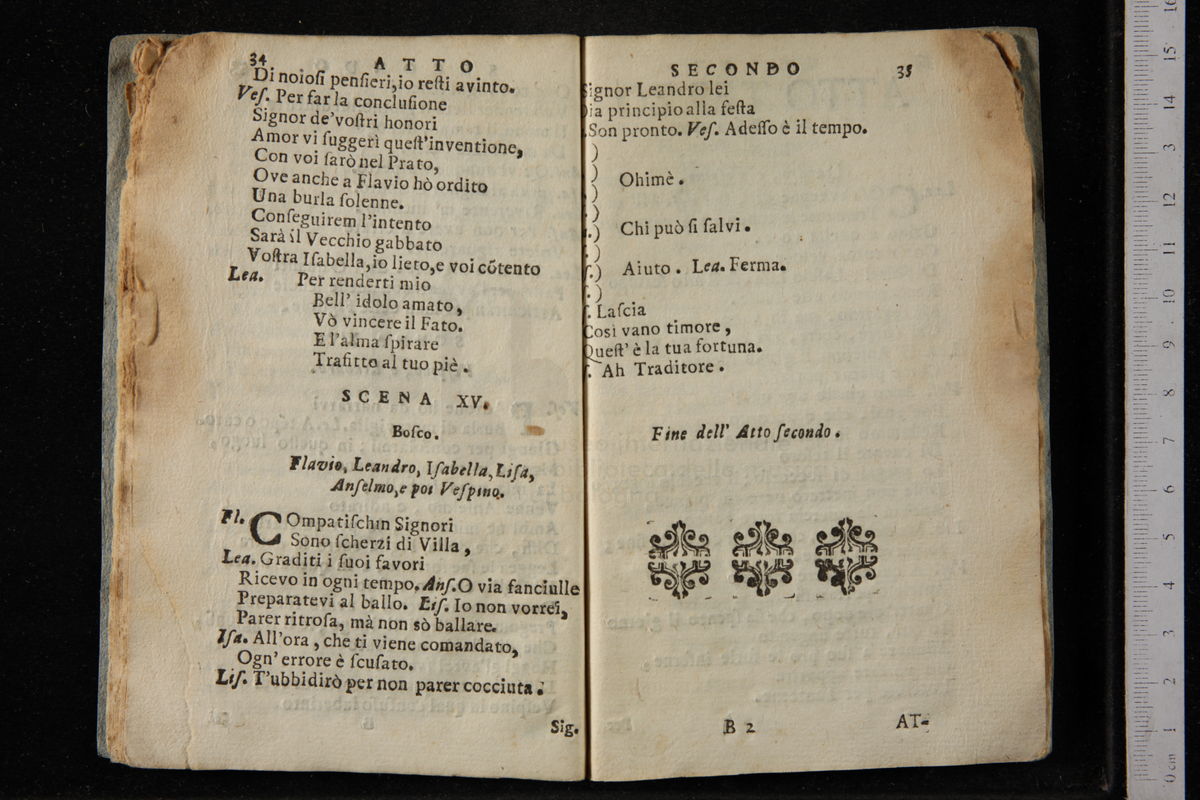 34 ATTO
Di noiosi pensieri, io resti avinto.
Ves. Per far la conclusione
Signor de' vostri honori
Amor vi suggerì quest'inventione,
Con voi sarò nel Prato,
Ove anche a Flavio hò ordito
Una burla solenne.
Conseguirem l'intento
Sarà il Vecchio gabbato
Vostra Isabella, io lieto, e voi cõtento
Lea. Per renderti mio
Bell' idolo amato,
Vò vincere il Fato.
E l'alma spirare
Trafitto al tuo piè.
SCENA XV.
Bosco.
Flavio, Leandro, Isabella, Lisa,
Anselmo, e poi Vespino.
Fl. COmpatischin Signori
Sono scherzi di Villa,
Lea. Graditi i suoi favori
Ricevo in ogni tempo. Ans. O via fanciulle
Preparatevi al ballo. Lis. Io non vorrei,
Parer ritrosa, mà non sò ballare.
Isa. All'ora, che ti viene comandato,
Ogn' errore è scusato.
Lis. T'ubbidirò per non parer cocciuta.
Sig.
SECONDO 35
Signor Leandro lei
Dia principio alla festa
. Son pronto. Ves. Adesso è il tempo.
)
)
) Ohimè.
)
.) Chi può si salvi.
.)
s.) Aiuto. Lea. Ferma.
:)
s. Lascia
Così vano timore,
Quest' è la tua fortuna.
s. Ah Traditore.
Fine dell' Atto secondo.
B 2
AT-